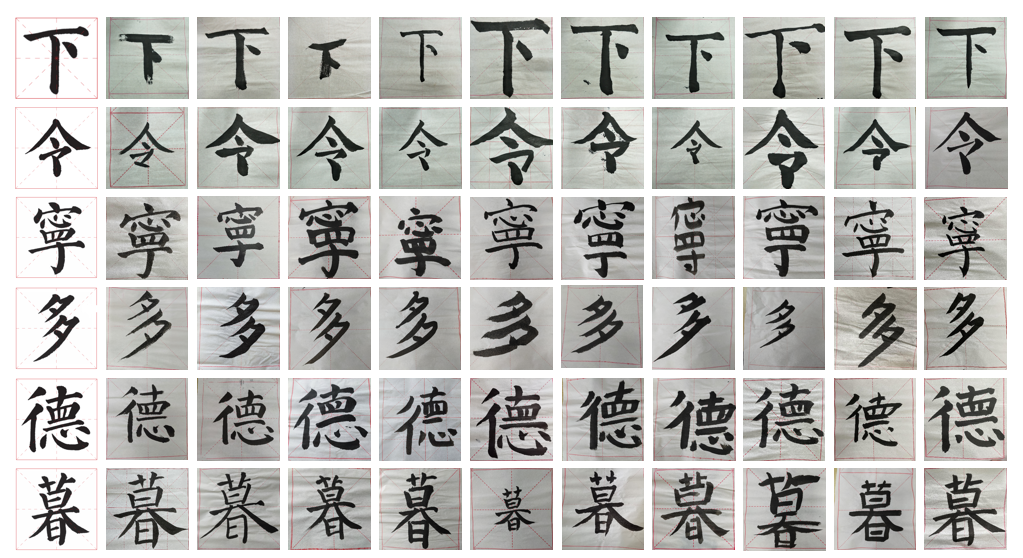 下下下下下下下下下下下
令令令令令令令令令令令
寧寧寧寧寧寧寧寧寧寧寧
多多多多多多多多多多多
德德德德德德德德德德德
暮暮暮暮暮暮暮暮暮暮暮